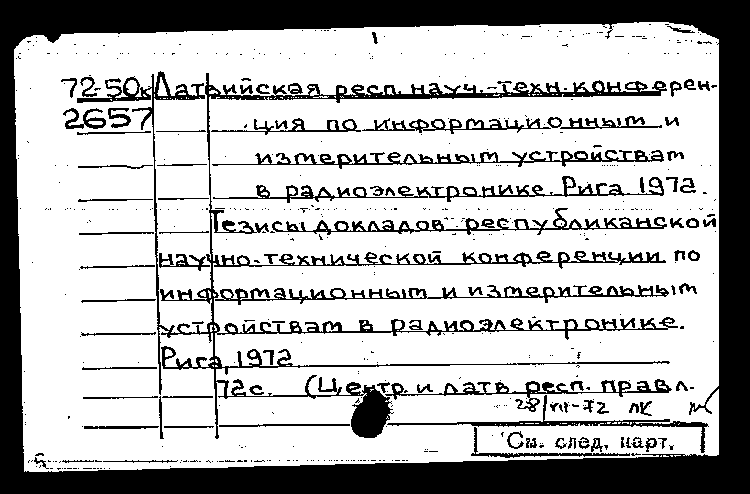 72-50к Латвийская респ. науч.-техн. конферен-
2657 ция по информационным и
измерительным устройствам
в радиоэлектронике. Рига 1972.
Тезисы докладов республиканской
научно-технической конференции по
информационным и измерительным
устройствам в радиоэлектронике.
Рига, 1972
72с. (Центр. и латв. респ. правл.
28/VII-72 ЛК
См. след. карт.